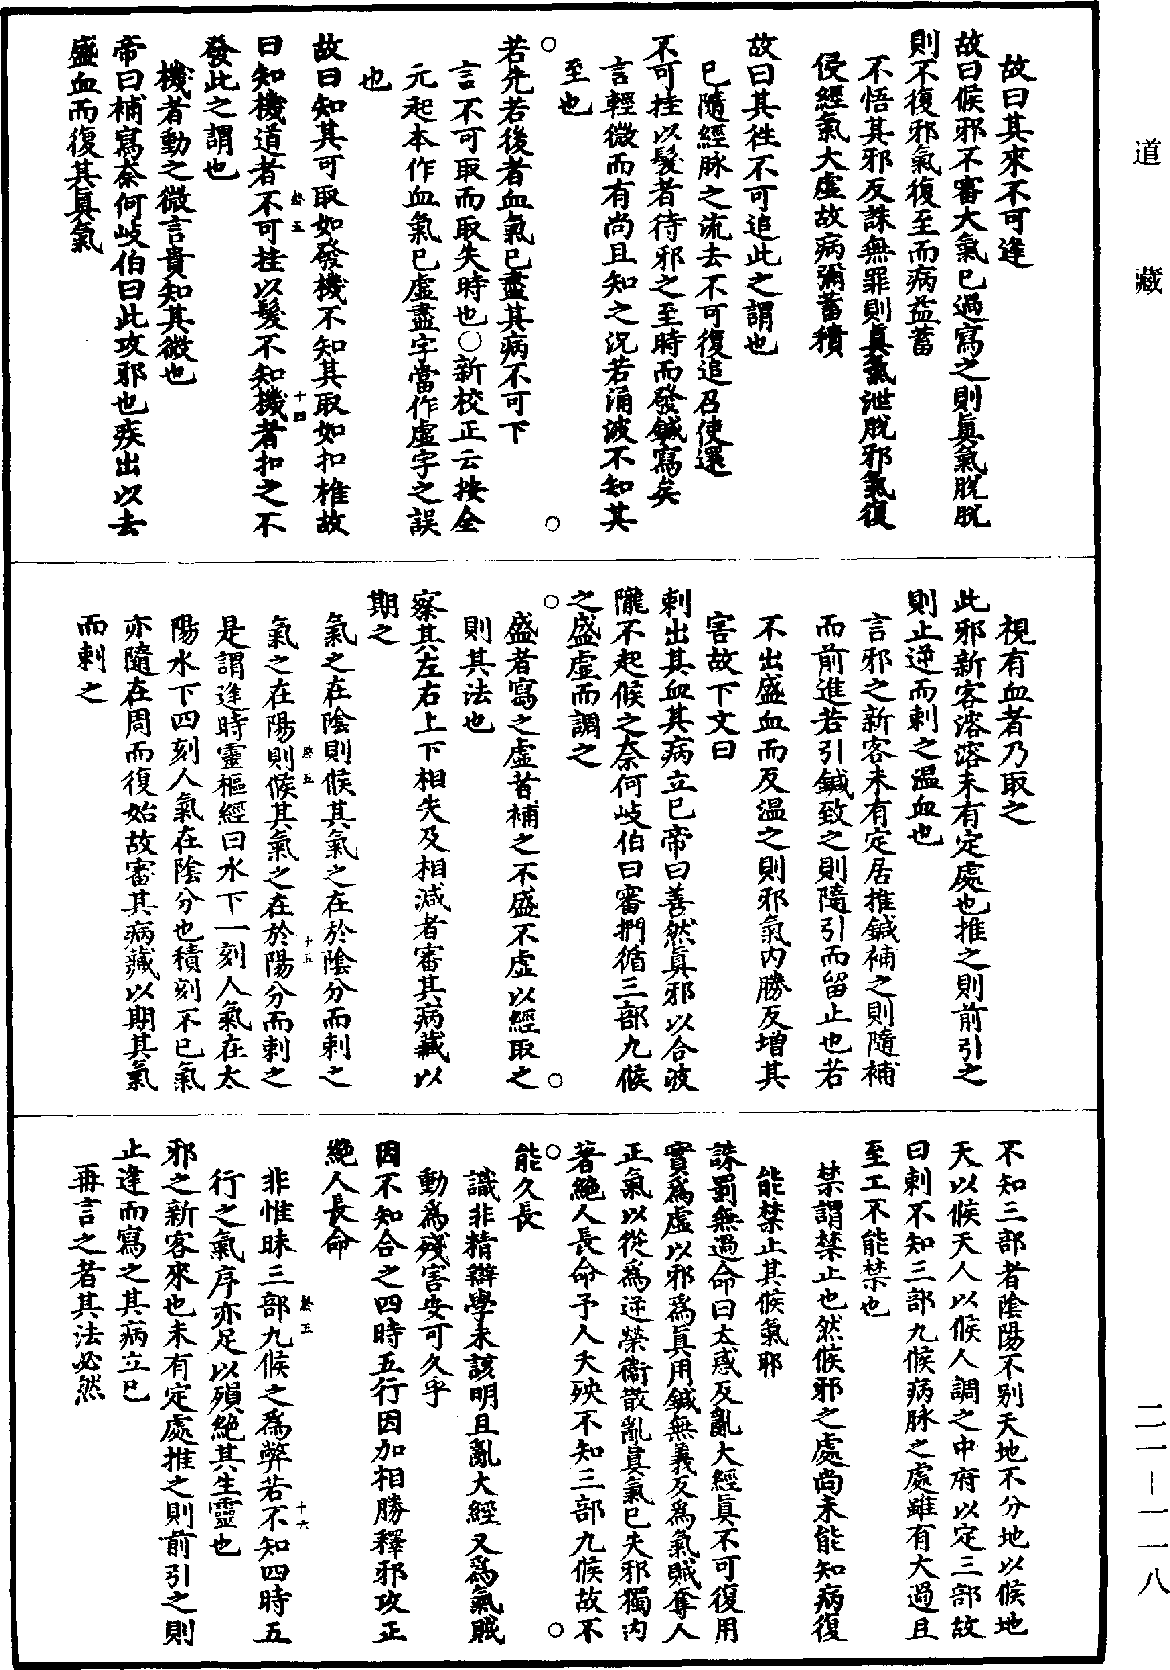 道藏
故曰其來不可逢
故曰候邪不審大氣已過寫之則眞氣脫脫
則不復邪氣復至而病益蓄
不悟其邪反誅無罪則眞氣泄脫邪氣復
侵經氣大虛故病彌蓄積
故曰其徃不可追此之謂也
已隨經脉之流去不可復追召使還
不可挂以髮者待邪之至時而發鍼寫矣
言輕微而有尚且知之況若涌波不知其
至也
若先若後者血氣已盡其病不可下
言不可取而取失時也○新校正云按全
元起本作血氣已虛盡字當作虛字之誤
也
故曰知其可取如發機不知其取如扣椎故
曰知機道者不可挂以髮不知機者扣之不
發此之謂也
機者動之微言貴知其微也
帝曰補寫柰何岐伯曰此攻邪也疾出以去
盛血而復其眞氣
視有血者乃取之
此邪新客溶溶未有定處也推之則前引之
則止逆而刺之溫血也
言邪之新客未有定居推鍼補之則隨補
而前進若引鍼致之則隨引而留止也若
不出盛血而反溫之則邪氣內勝反增其
害故下文曰
刺出其血其病立已帝曰善然眞邪以合波
隴不起候之柰何岐伯曰審捫循三部九候
之盛虛而調之
盛者寫之虛者補之不盛不虛以經取之
則其法也
察其左右上下相失及相減者審其病藏以
期之
氣之在陰則候其氣之在於陰分而刺之
氣之在陽則候其氣之在於陽分而刺之
是謂逢時靈樞經曰水下一刻人氣在太
陽水下四刻人氣在陰分也積刻不已氣
亦隨在周而復始故審其病藏以期其氣
而刺之
不知三部者陰陽不别天地不分地以候地
天以候天人以候人調之中府以定三部故
曰刺不知三部九候病脉之處雖有大過且
至工不能禁也
禁謂禁止也然候邪之處尚未能知病復
能禁止其候氣邪
誅罰無過命曰大惑反亂大經眞不可復用
實爲虛以邪爲眞用鍼無義反爲氣賊奪人
正氣以從爲逆榮衞散亂眞氣已失邪獨內
著絕人長命予人夭殃不知三部九候故不
能久長
識非精辯學未該明且亂大經又爲氣賊
動爲殘害安可久乎
因不知合之四時五行因加相勝釋邪攻正
絕人長命
非惟昧三部九候之爲弊若不知四時五
行之氣序亦足以殞絕其生靈也
邪之新客來也未有定處推之則前引之則
止逢而寫之其病立已
再言之者其法必然
二一—一一八